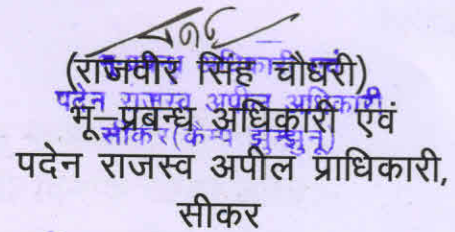 (राजवीर सिंह चौधरी)
भू–प्रबन्ध अधिकारी एवं
पदेन राजस्व अपील अधिकारी
सीकर (कैम्प झुन्झुनू)
पदेन राजस्व अपील प्राधिकारी,
सीकर